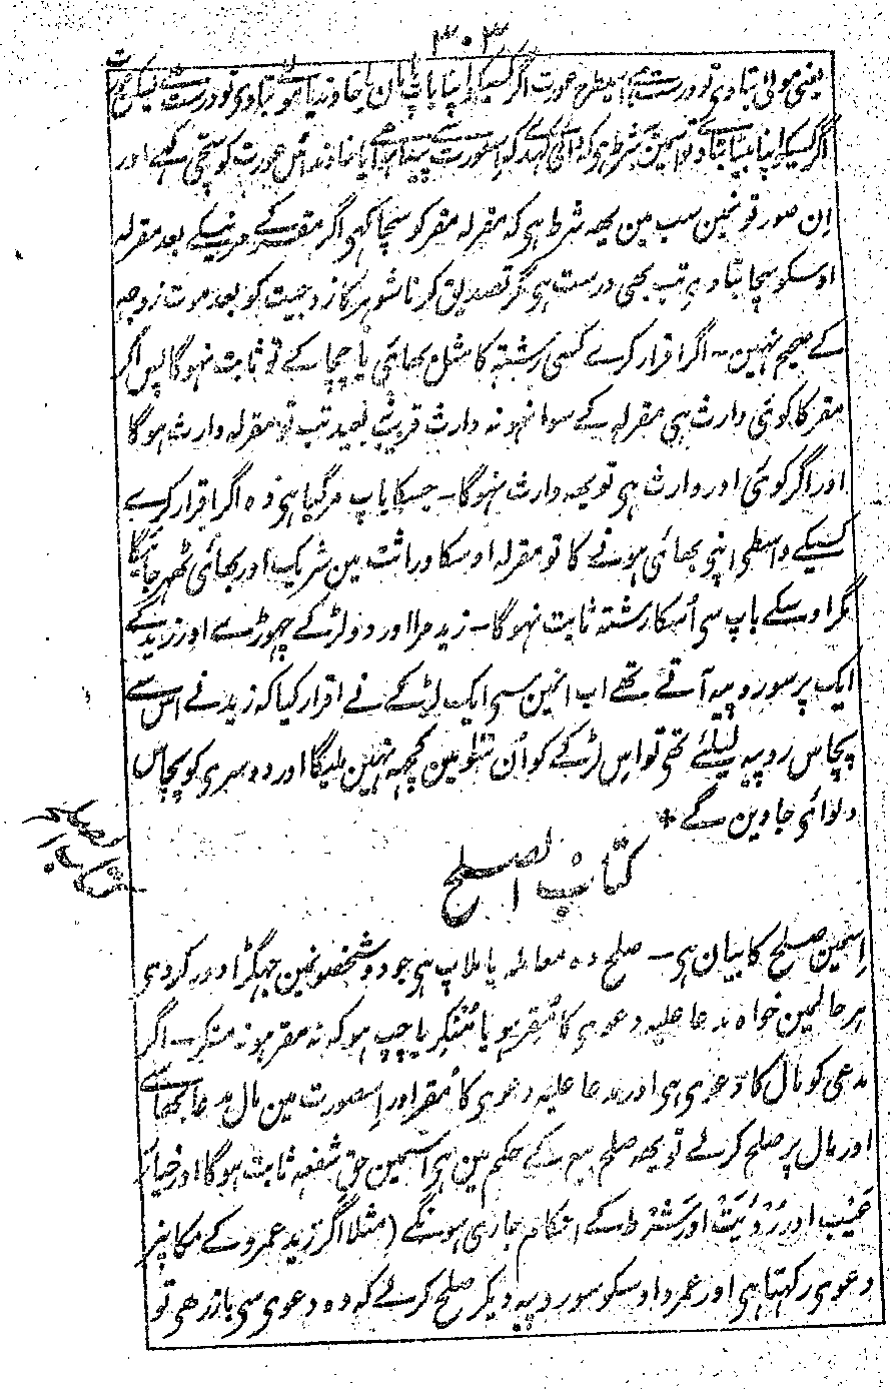 ۳۰۳
یعنی مولی بتاوی تو درست ہے اسیطرح عورت اگر کسیکو اپنا باپ یا مان یا خاوند یا مولی بتاوی تو درست ہے لیکن عورت
اگر کسیکو اپنا بیٹا بتاوے تو اسمین شرط ہی کہ دائی کہدے کہ اس عورت سے پیدا ہوا ہے یا خاوند اس عورت کو سچی کہے اور
ان صورتونمین سب مین یہہ شرط ہی کہ مقرلہ مقر کو سچا کہی اگر مقر کے مرنیکے بعد مقرلہ
اوسکو سچا بتاوی تب بھی درست ہی مگر تصدیق کرنا شوہر کا زوجیت کو بعد موت زوجہ
کے صحیح نہین – اگر اقرار کرے کسی رشتہ کا مثل بھائی یا چچا کے تو ثابت نہوگا پس اگر
مقر کا کوئی وارث ہی مقرلہ کے سوا نہو نہ وارث قریب نہ بعید تب تو مقرلہ وارث ہوگا
اور اگر کوئی اور وارث ہی تو یہہ وارث نہوگا – جسکا باپ مرگیا ہی وہ اگر اقرار کرے
کسیکے واسطی اپنی بھائی ہونے کا تو مقرلہ اوسکا وراثت مین شریک اور بھائی ٹھہر جائیگا
مگر اوسکے باپ سی اُسکا رشتہ ثابت نہوگا – زید مرا اور دو لڑکے چھوڑے اور زید کے
ایک پر سو روپیہ آتے تھے اب انمین سی ایک لڑکے نے اقرار کیا کہ زید نے اس سے
پچاس روپیہ لیلئے تھی تو اس لڑکے کو اُن سَو مین کچھہ نہین ملیگا اور دوسری کو پچاس
دلوائی جاوین گے *
کتاب الصلح
کتاب الصلح
اِسمین صلح کا بیان ہی – صلح وہ معاملہ یا ملاپ ہی جو دو شخصونمین جہگڑا دور کردی
ہر حالمین خواہ مدعا علیہ دعوی کا مُقِر ہو یا مُنکِر یا چپ ہو کہ نہ مقر ہو نہ منکر – اگر
مدعی کو مال کا دعوی ہی اور مدعا علیہ دعوی کا مُقر اور اِسصورت مین مال مدعا بھا سے
اور مال پر صلح کرلے تو یہہ صلح بیع کے حکم مین ہی اسمین حق شفعہ ثابت ہوگا اور خیار
عَیْب اور رُوئیَتْ اور شَرْط کے احکام جاری ہونگے (مثلا اگر زید عمرو کے مکانپر
دعوی رکہتا ہی اور عمرو اوسکو سو روپیہ دیکر صلح کرلے کہ وہ دعوی سی باز رهی تو